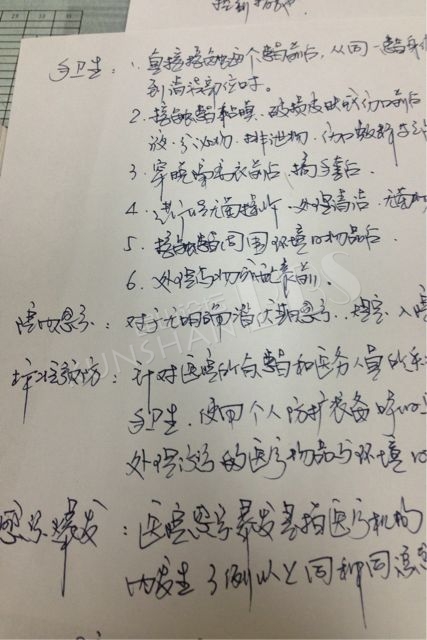 手卫生：1. 直接接触每个患者前后，从同一患者身体
到清洁部位时。
2. 接触患者黏膜、破损皮肤或伤口前后
液、分泌物、排泄物、伤口敷料等之
3. 穿脱隔离衣前后，摘手套后
4. 进行无菌操作、处理清洁、无菌物
5. 接触患者周围环境及物品后
6. 处理药物或配餐前。
院内感染：对无明确潜伏期感染，规定入院
标准预防：针对医院所有患者和医务人员的系
手卫生，使用个人防护装备
处理污染的医疗物品与环境
感染暴发：医院感染暴发是指医疗机构
内发生3例以上同种同源感
SUNSHANE LABS